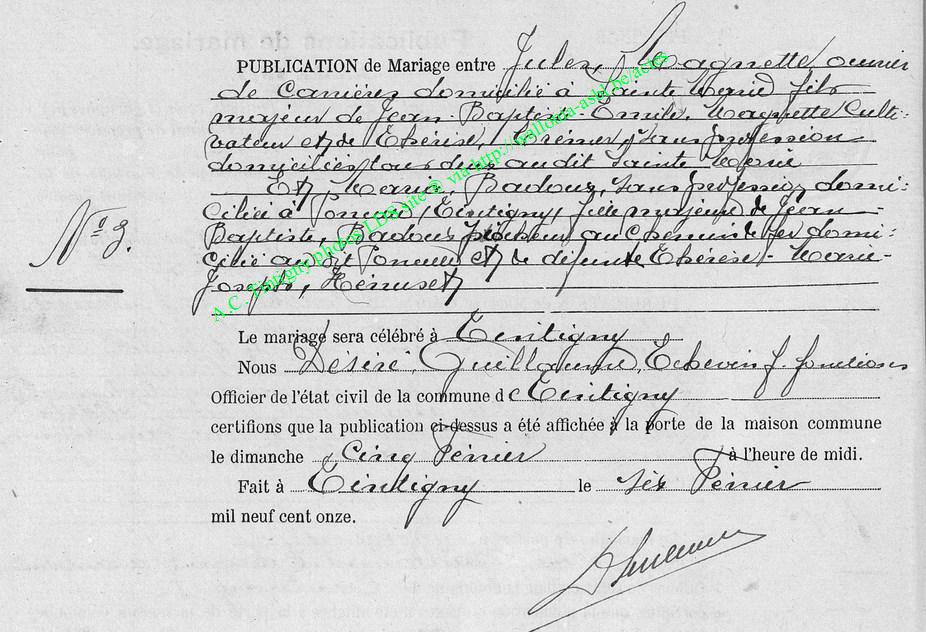 PUBLICATION de Mariage entre Jules, Magnette, ouvrier
de carrières domicilié à Sainte Marie fils
majeur de Jean-Baptiste-Emile, Magnette Culti-
vateur et de Thérèse, sans profession
domiciliés tous deux audit Sainte Marie
Et Marie, Badoux, sans profession, domi-
ciliée à Poncel, Tintigny, fille majeure de Jean-
Baptiste, Badoux piocheur au chemin de fer domi-
cilié audit Poncel et de défunte Thérèse-Marie-
Joseph,
N° 3.
Le mariage sera célébré à Tintigny
Nous Désiré, Guillaume, Echevin f. fonctions
Officier de l'état civil de la commune de Tintigny
certifions que la publication ci-dessus a été affichée à la porte de la maison commune
le dimanche Cinq Février à l'heure de midi.
Fait à Tintigny le six Février
mil neuf cent onze.
A.C. Tintigny photos LDS site © via http://wallonia-asbl.be/actes